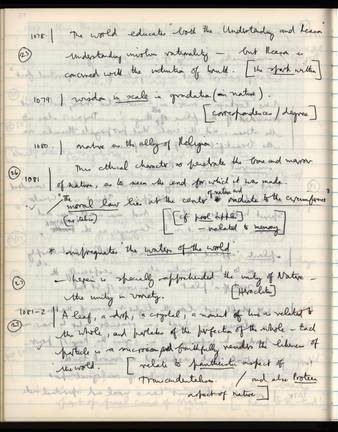 1078. | The world educates both the Understanding and Reason
(25) Understanding involves rationality — but Reason is
concerned with the intuition of truth. [the spark within]
1079. | wisdom is scale is gradation (in nature).
[correspondence / degree]
1080. | nature as the ally of Religion
(26) This ethical character so penetrates the bone and marrow
1081 | of nature, as to seem the end for which it was made.
The moral law lies at the centre of nature and radiates to the circumference
[cf
— related to memory]
* impregnates the waters of the world
(27) — is specially apprehended the unity of Nature —
the unity in variety. [Heraclitus]
1081-2 | A leaf, a drop, a crystal, a moment of time is related to
(28) the whole, and partakes of the perfection of the whole — Each
particle is a microcosm & faithfully renders the likeness of
the world. [relate to pantheistic aspect of
Transcendentalism / and also Protean
aspect of nature]